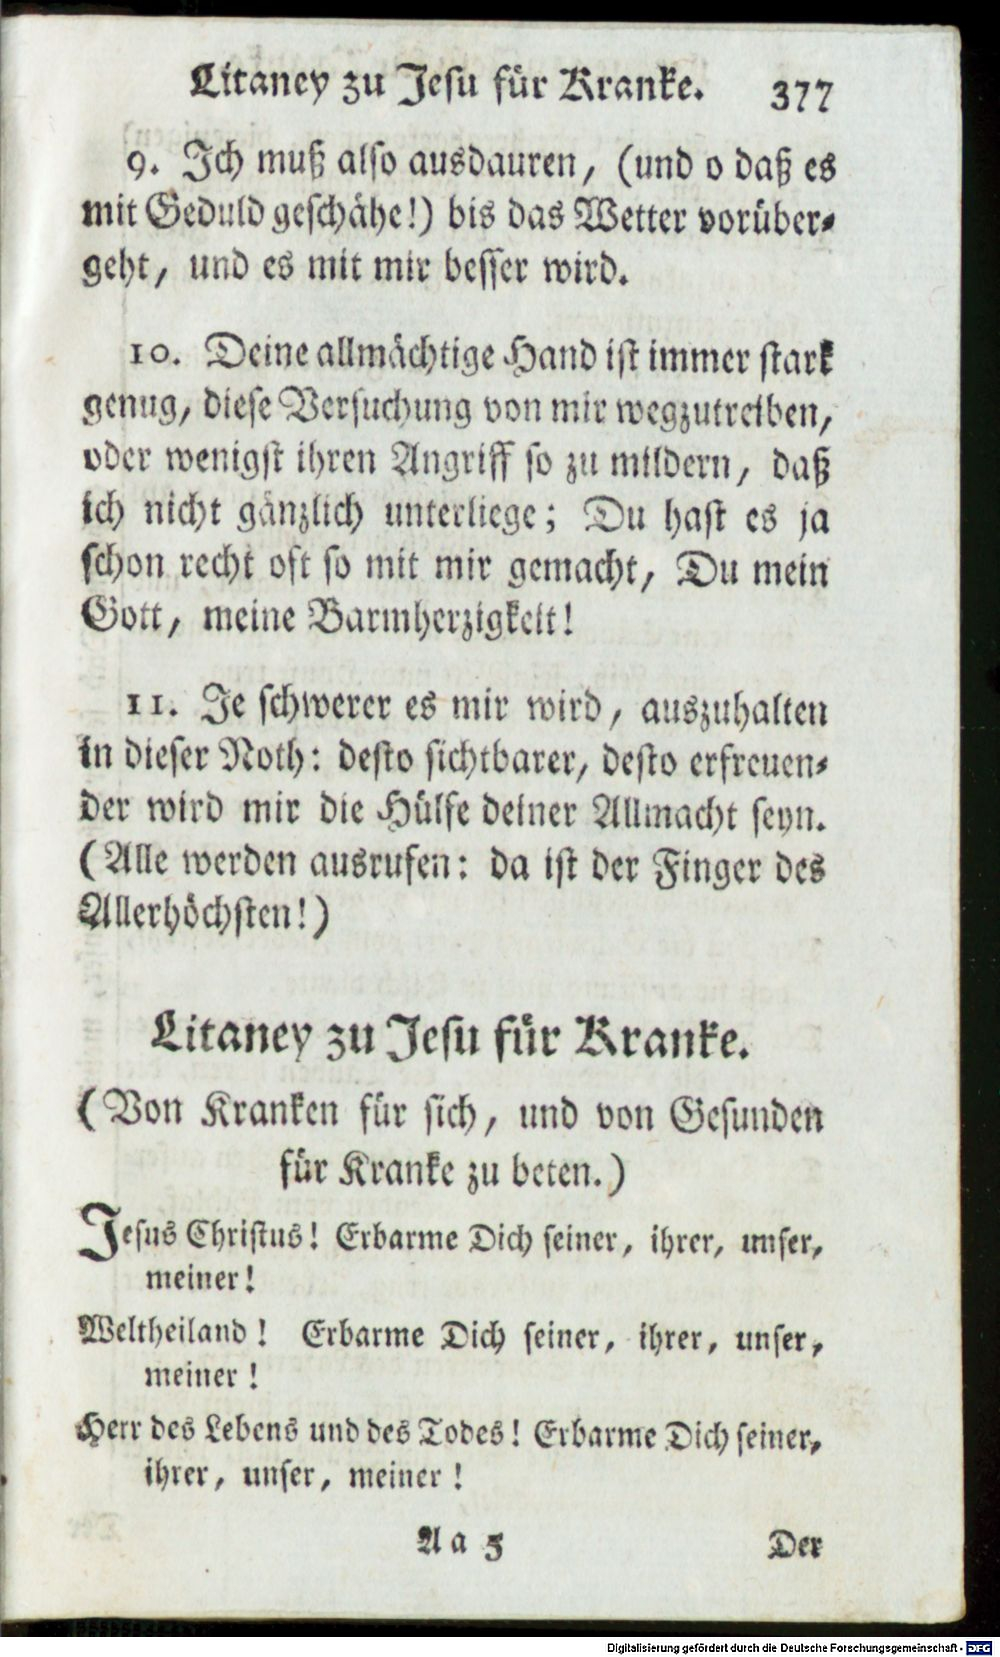 Litaney zu Jesu für Kranke. 377
9. Ich muß also ausdauren, (und o daß es
mit Geduld geschähe!) bis das Wetter vorüber-
geht, und es mit mir besser wird.
10. Deine allmächtige Hand ist immer stark
genug, diese Versuchung von mir wegzutreiben,
oder wenigst ihren Angriff so zu mildern, daß
ich nicht gänzlich unterliege; Du hast es ja
schon recht oft so mit mir gemacht, Du mein
Gott, meine Barmherzigkeit!
11. Je schwerer es mir wird, auszuhalten
in dieser Noth: desto sichtbarer, desto erfreuen-
der wird mir die Hülfe deiner Allmacht seyn.
(Alle werden ausrufen: da ist der Finger des
Allerhöchsten!)
Litaney zu Jesu für Kranke.
(Von Kranken für sich, und von Gesunden
für Kranke zu beten.)
Jesus Christus! Erbarme Dich seiner, ihrer, unser,
meiner!
Weltheiland! Erbarme Dich seiner, ihrer, unser,
meiner!
Herr des Lebens und des Todes! Erbarme Dich seiner,
ihrer, unser, meiner!
Aa 5 Der
Digitalisierung gefördert durch die Deutsche Forschungsgemeinschaft - DFG